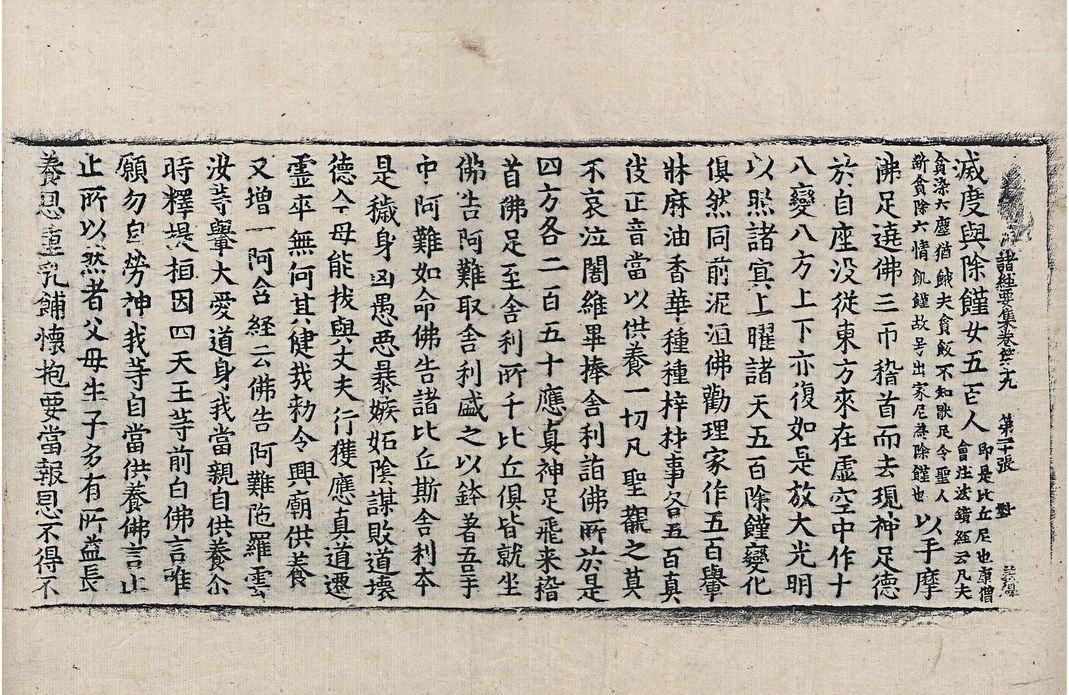 諸經要集卷第十九 第二十張 對
滅度與除饉女五百人即是比丘尼也康僧會注法鏡經云凡夫
貪染六塵猶餓夫貪飯不知猒足今聖人斷貪除六情飢饉故号出家尼爲除饉也以手摩
佛足遶佛三帀稽首而去現神足德
於自座没從東方來在虛空中作十
八變八方上下亦復如是放大光明
以照諸冥上曜諸天五百除饉變化
俱然同前泥洹佛勸理家作五百轝
牀麻油香華種種梓材事各五百真
伎正音當以供養一切凡聖觀之莫
不哀泣闍維畢捧舍利詣佛所於是
四方各二百五十應真神足飛来稽
首佛足至舍利所千比丘俱皆就坐
佛告阿難取舍利盛之以鉢著吾手
中阿難如命佛告諸比丘斯舍利夲
是穢身凶愚惡暴嫉妬陰謀敗道壞
德今母能拔與丈夫行獲應真道遷
靈卒無何其健哉勑令興廟供養
又增一阿含経云佛告阿難陁羅雲
汝䓁轝大愛道身我當親自供養尒
時釋提桓因四天王等前白佛言唯
願勿自勞神我等自當供養佛言止
止所以然者父母生子多有所益長
養恩重乳餔懷抱要當報恩不得不